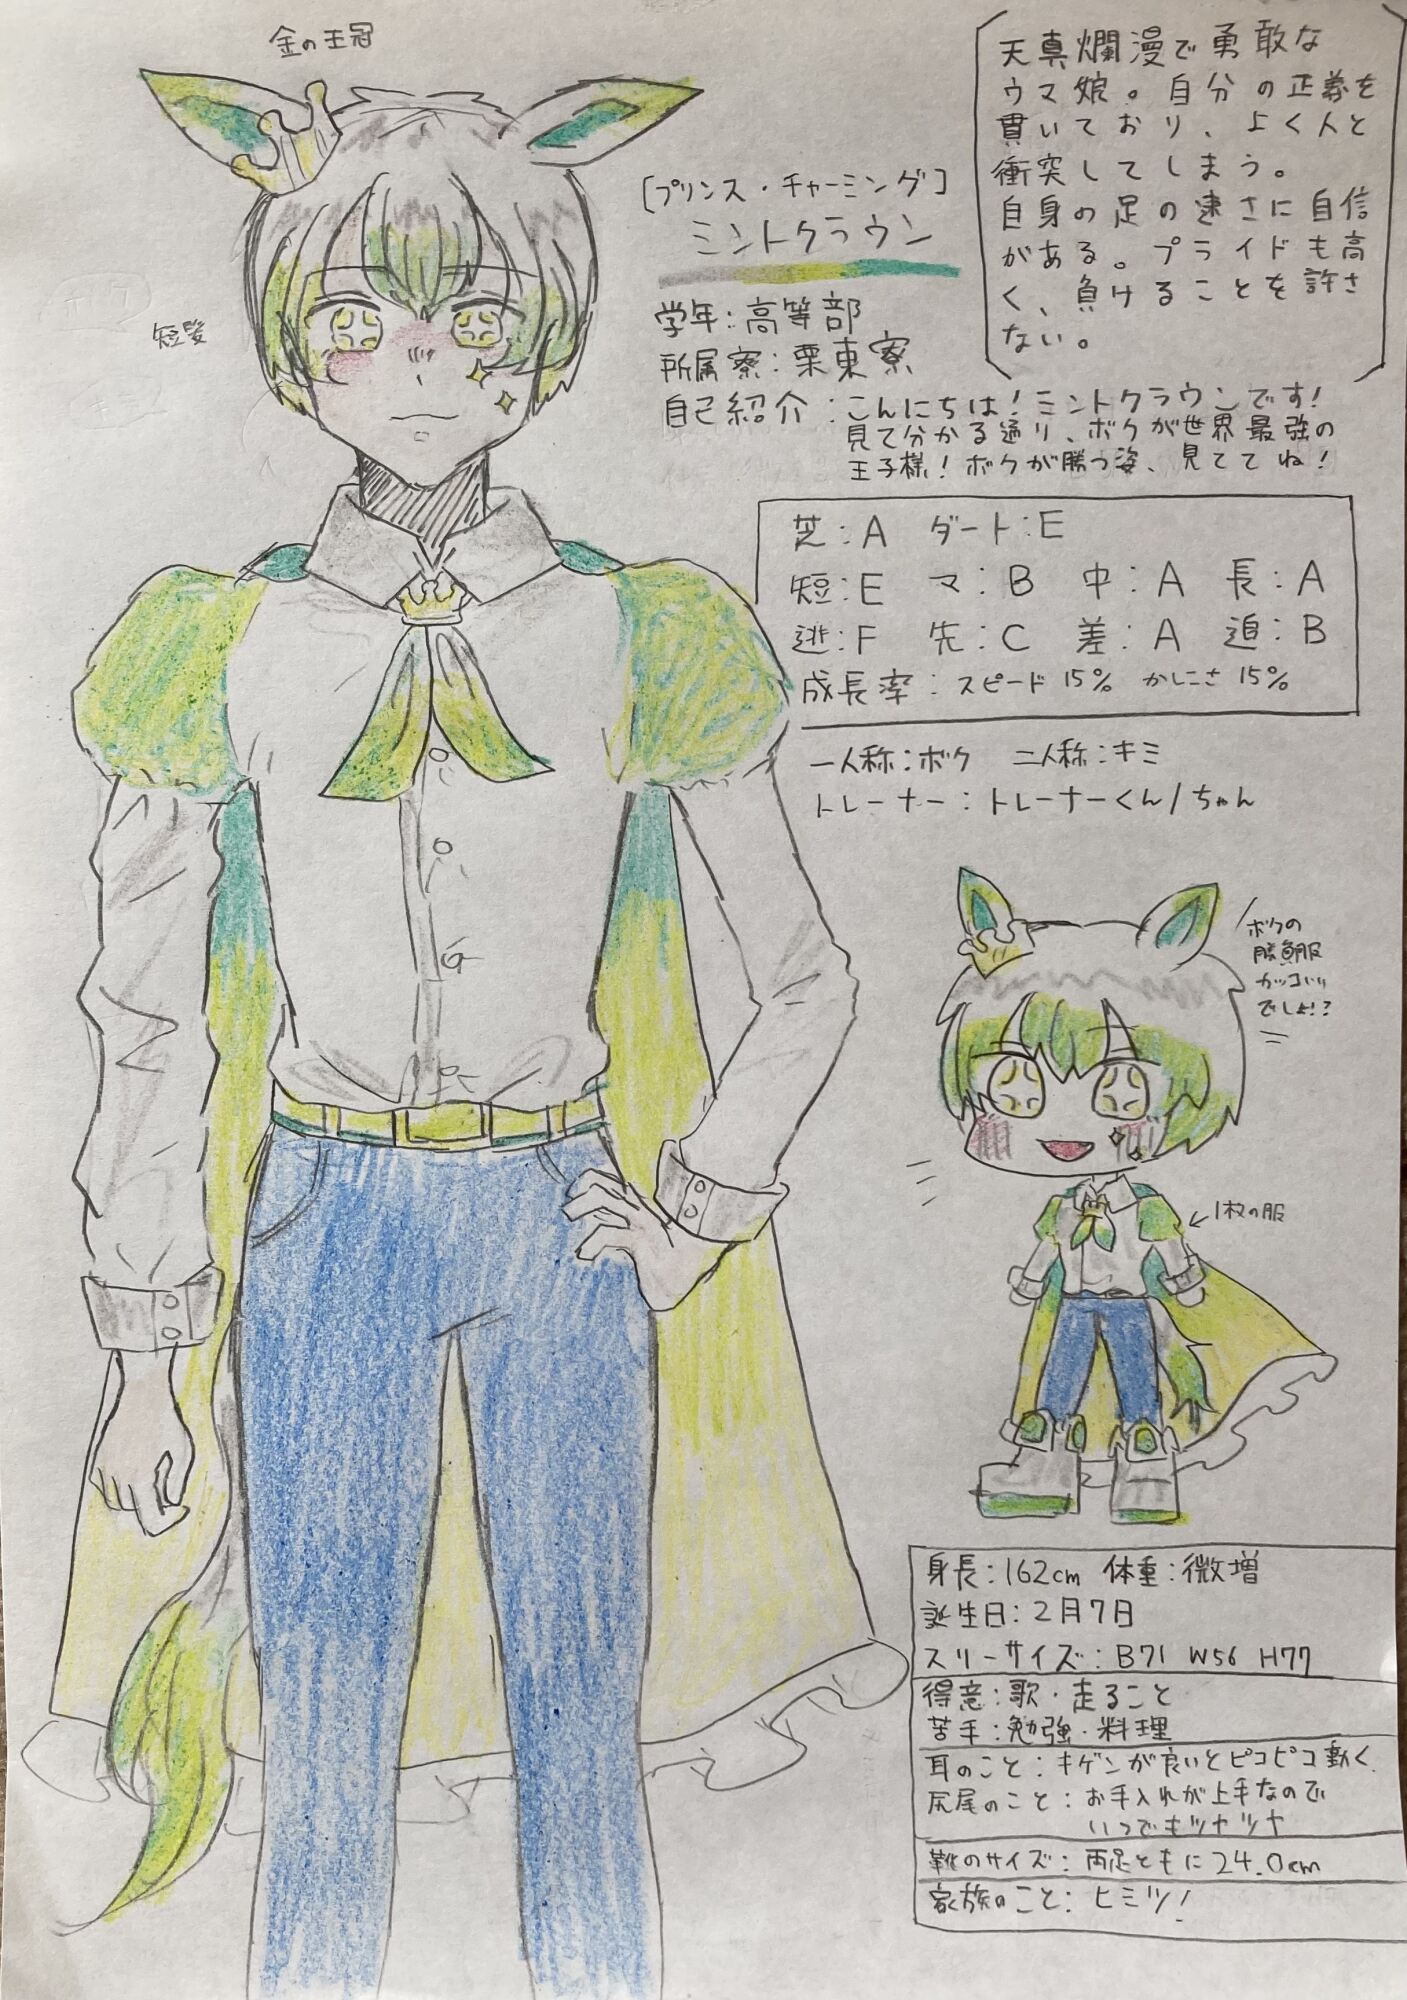 金の王冠
天真爛漫で勇敢な
ウマ娘。自分の正義を
貫いており、よく人と
衝突してしまう。
自身の足の速さに自信
がある。プライドも高
く、負けることを許さ
ない。
[プリンス・チャーミング]
ミントクラウン
短髪
学年:高等部
所属寮:栗東寮
自己紹介:こんにちは!ミントクラウンです!
見て分かる通り、ボクが世界最強の
王子様!ボクが勝つ姿、見ててね!
芝:A ダート:E
短:E マ:B 中:A 長:A
逃:F 先:C 差:A 追:B
成長率:スピード15% かしこさ15%
一人称:ボク 二人称:キミ
トレーナー:トレーナーくん/ちゃん
ボクの
勝負服
カッコいい
でしょ!?
1枚の服
身長:162cm 体重:微増
誕生日:2月7日
スリーサイズ:B71 W56 H77
得意:歌・走ること
苦手:勉強・料理
耳のこと:キゲンが良いとピコピコ動く.
尻尾のこと:お手入れが上手なので
いつでもツヤツヤ
靴のサイズ:両足ともに24.0cm
家族のこと:ヒミツ!